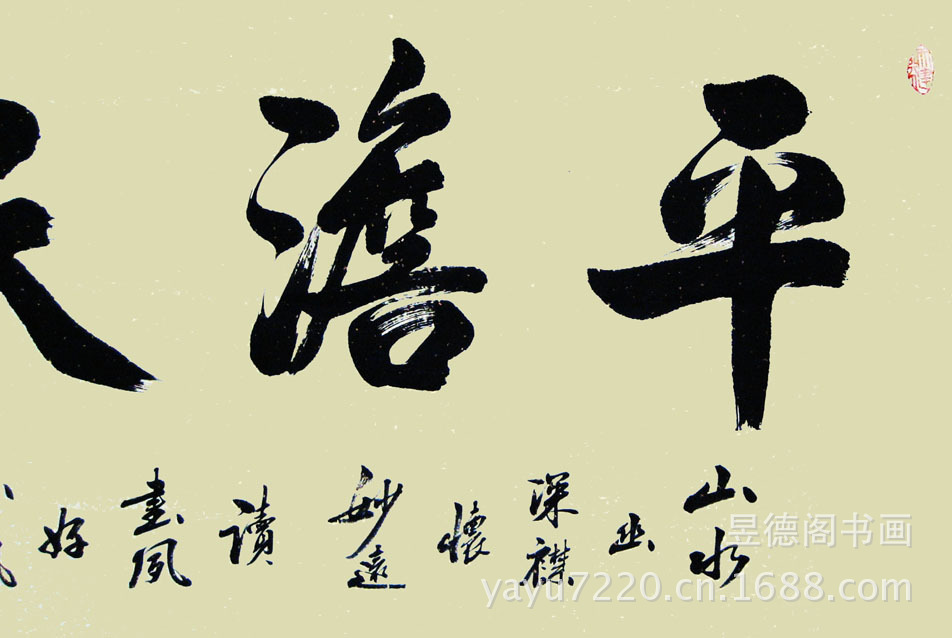 平澹天
山水幽深襟懷妙遠讀書夙好
昱德阁书画
yayu7220.cn.1688.com